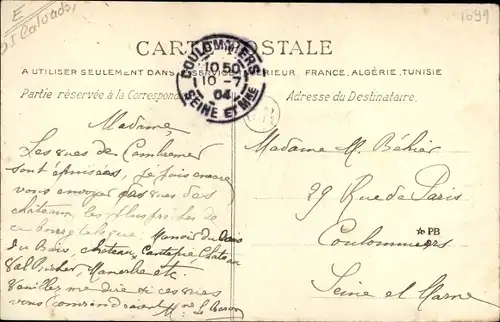 E
Calvados
1091
CARTE POSTALE
A UTILISER SEULEMENT DANS SERVICE INTÉRIEUR FRANCE, ALGÉRIE, TUNISIE
Partie réservée à la Correspondance
Adresse du Destinataire.
COULOMMIERS
10 50
10 -7
04
SEINE ET MNE
Madame,
Les vues de Cambremer
sont épuisées, je puis encore
vous envoyer des
châteaux les plus proches de
ce bourg Manoir du Bais
château Cantepie Château
Val Richer, Manerbe etc.
Veuillez me dire si ces vues
vous conviendraient Baron
Madame M. Béhier
29 Rue de Paris
Coulommiers
Seine et Marne
PB